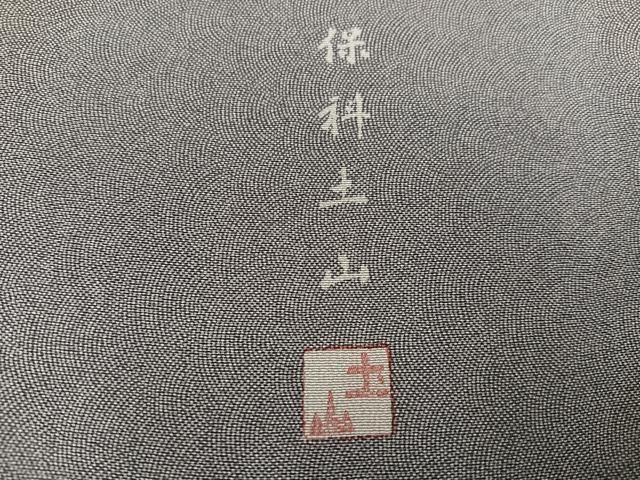 保科土山
土山